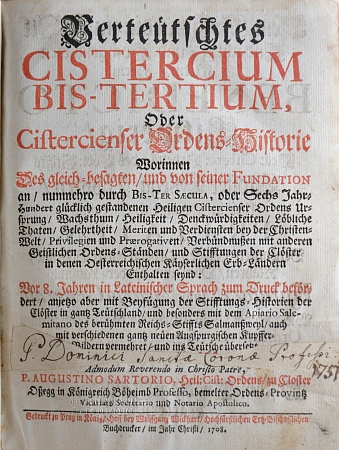 Verteütschtes
CISTERCIUM
BIS-TERTIUM,
Oder
Cistercienser Ordens-Historie
Worinnen
Des gleich-besagten/ und von seiner FUNDATION
an/ nunmehro durch BIS-TER SÆCULA, oder Sechs Jahr-
Hundert glücklich gestandenen Heiligen Cistercienser Ordens Ur-
sprung/ Wachsthum/ Heiligkeit/ Denckwürdigkeiten/ Löbliche
Thaten/ Gelehrtheit/ Meriten und Verdiensten bey der Christen-
Welt/ Privilegien und Prærogativen/ Verbündnußen mit anderen
Geistlichen Ordens-Ständen/ und Stifftungen der Clöster
in denen Oesterreichischen Käyserlichen Erb-Ländern
Enthalten seynd:
Vor 8. Jahren in Lateinischer Sprach zum Druck beför-
dert/ anjetzo aber mit Beyfügung der Stifftungs-Historien der
Clöster in gantz Teütschland/ und besonders mit dem Apiario Sale-
mitano des berühmten Reichs-Stiffts Salmansweyl/ auch
mit verschiedenen gantz neüen Augspurgischen Kupffer-
Bildern vermehret/ und ins Teütsche übersetzt
P. Dominici Sanctæ Coronæ Professi
1751
Admodum Reverendo in Christo Patre,
P. AUGUSTINO SARTORIO, Heil: Cist: Ordens/ zu Closter
Oßegg in Königreich Böheimb Professo, bemelter Ordens-Provintz
Vicariatûs Secretario und Notario Apostolico.
Gedruckt zu Prag in Königshof bey Wolffgang Wickhart/ Hochfürstlichen Ertz-Bischofflichen
Buchdrucker/ im Jahr Christi/ 1708.